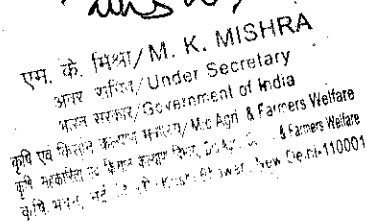 एम. के. मिश्रा/M. K. MISHRA
अवर सचिव/Under Secretary
भारत सरकार/Government of India
कृषि एवं किसान कल्याण मंत्रालय/M/o Agri & Farmers Welfare
कृषि सहकारिता एवं किसान कल्याण विभाग, & Farmers Welfare
कृषि भवन, नई New Delhi-110001